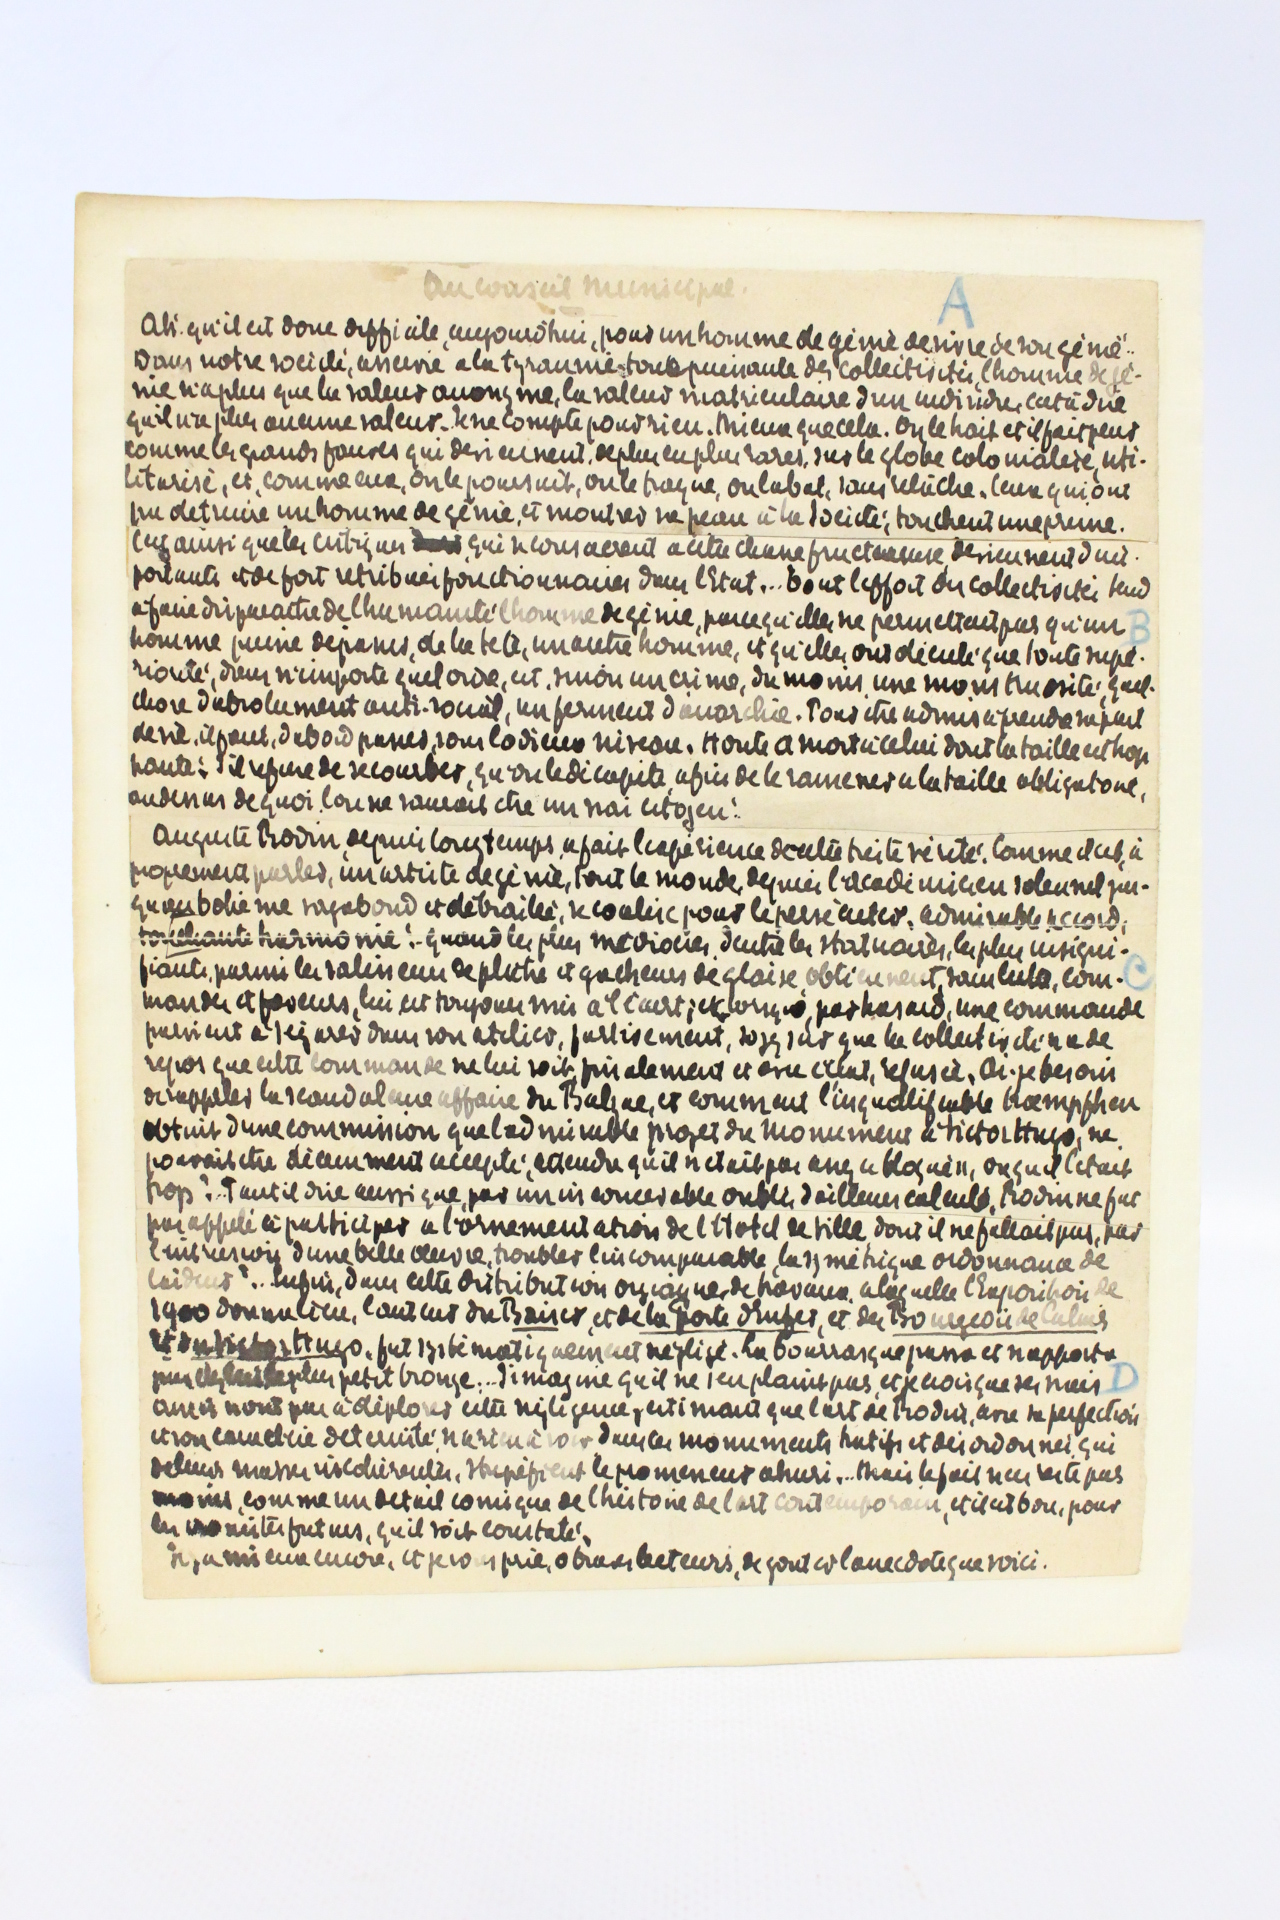 Au conseil municipal.
A
Ah! qu'il est donc difficile, aujourd'hui, pour un homme de génie de vivre de son génie!..
Dans notre société, asservie à la tyrannie toute puissante des collectivités, l'homme de gé-
nie n'a plus que la valeur anonyme, la valeur matriculaire d'un individu, c'est à dire
qu'il n'a plus aucune valeur. Il ne compte pour rien. Mieux que cela. On le hait et il fait peur
comme les grands fauves qui deviennent, de plus en plus rares, sur le globe colonialisé, uti-
litarisé, et, comme eux, on le poursuit, on le traque, on l'abat, sans relâche. Ceux qui ont
pu détruire un homme de génie, et montrer sa peau à la société, touchent une prime.
C'est ainsi que les critiques qui se consacrent à cette chasse fructueuse, deviennent d'im-
portants et de fort rétribués fonctionnaires dans l'Etat... Tout l'effort des collectivités tend
à faire disparaître de l'humanité l'homme de génie, parce qu'elles ne permettent pas qu'un
B
homme puisse dépasser, de la tête, un autre homme, et qu'elles ont décidé que toute supé-
riorité, dans n'importe quel ordre, est, sinon un crime, du moins, une monstruosité, quel-
chose d'absolument anti-social, un ferment d'anarchie. Pour être admis à prendre sa part
de vie, il faut, d'abord passer, sous l'odieux niveau. Honte et mort à celui dont la taille est trop
haute! S'il refuse de se courber, qu'on le décapite, afin de le ramener à la taille obligatoire,
au dessus de quoi, l'on ne saurait être un vrai citoyen!
Auguste Rodin, depuis longtemps, a fait l'expérience de cette triste vérité. Comme il est, à
proprement parler, un artiste de génie, tout le monde, depuis l'académicien solennel jus-
qu'au bohème vagabond et débraillé, se coalise pour le persécuter. Admirable accord,
touchante harmonie!.. Quand les plus médiocres d'entre les statuaires, les plus insigni-
fiants parmi les salisseurs de plâtre et gâcheurs de glaise, obtiennent, sans lutte, com-
C
mandes et faveurs, lui est toujours mis à l'écart; et lorsque, par hasard, une commande
parvient à s'égarer dans son atelier, furtivement, soyez sûr que la collectivité n'a de
repos que cette commande ne lui soit, finalement et avec éclat, refusée. Ai-je besoin
de rappeler la scandaleuse affaire du Balzac, et comment l'inqualifiable Kaempfhen
obtint d'une commission que l'admirable projet du Monument à Victor Hugo, ne
pouvait être décemment accepté, attendu qu'il n'était pas assez , ou qu'il l'était
trop?.. Faut-il dire aussi que, par un inconcevable oubli, d'ailleurs calculé, Rodin ne fut
pas appelé à participer à l'ornementation de l'Hotel de Ville dont il ne fallait pas, par
l'intrusion d'une belle œuvre, troubler l'incomparable, la symétrique ordonnance de
laideur?.. Enfin, dans cette distribution orgiaque de travaux à laquelle l'Exposition de
1900 donna lieu, l'auteur du Baiser, et de la Porte d'Enfer, et des Bourgeois de Calais
et du Victor Hugo, fut systématiquement négligé. La bourrasque passa et n'apporta
pas le plus petit bronze... J'imagine qu'il ne s'en plaint pas, et je crois que ses vrais
D
amis n'ont pas à déplorer cette négligence, estimant que l'art de Rodin, avec sa perfection
et son caractère d'éternité, n'a rien à voir dans ces monuments hâtifs et désordonnés, qui
de leurs masses , stupéfient le promeneur ahuri... Mais le fait n'en reste pas
moins, comme un détail comique de l'histoire de l'art contemporain, et il est bon, pour
les futures, qu'il soit constaté.
Il y a mieux encore, et je vous prie, ô braves lecteurs, de goûter l'anecdote que voici.